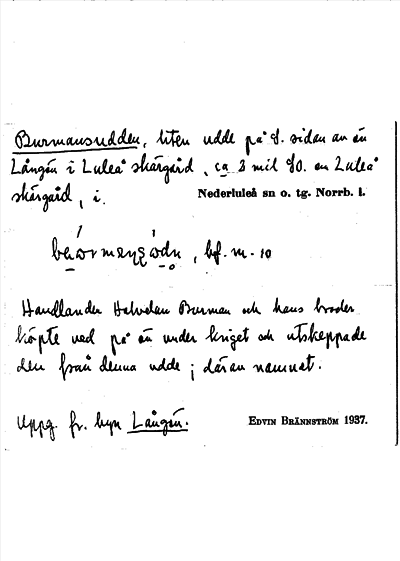 Burmansudden, liten udde på s. sidan av ön
Långön i Luleå skärgård, ca 3 mil SO. om Luleå
skärgård, i. Nederluleå sn o. tg. Norrb. l.
bf. m. -10
Handlanden Halvdan Burman och hans broder
köpte ved på ön under kriget och utskeppade
den från denna udde; därav namnet.
Uppg. fr. byn Långön. EDVIN BRÄNNSTRÖM 1937.